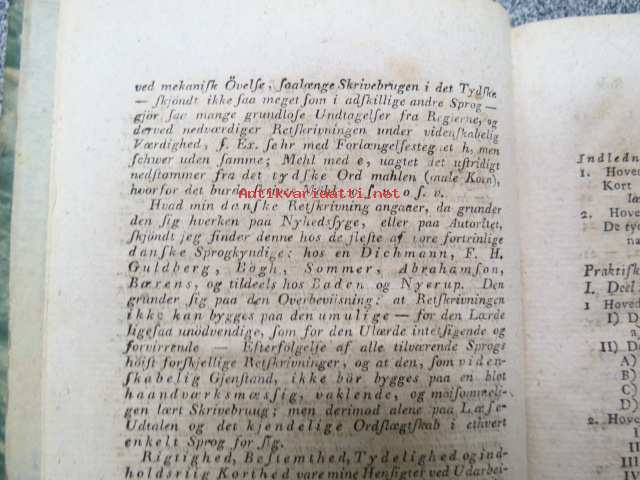 ved mekaniſk Övelſe, ſaalænge Skrivebrugen i det Tydſke
— ſkjöndt ikke ſaa meget ſom i adſkillige andre Sprog —
gjör ſaa mange grundloſe Undtagelſer fra Reglerne, og
derved nedværdiger Retſkrivningen under videnſkabelig
Værdighed, ſ. Ex. ſehr med Forlængelſestegnet h, men
ſchwer uden ſamme; Mehl med e, uagtet det uſtridigt
nedſtammer fra det tydſke Ord mahlen (male Korn),
hvorfor det burde ſkrives Mähl, o. ſ. v. o. ſ. v.
antikvariaatti.net
Hvad min danſke Retſkrivning angaaer, da grunder
den ſig hverken paa Nyhedsſyge, eller paa Autoritet,
ſkjöndt jeg finder denne hos de fleſte af vore fortrinlige
danſke Sprogkyndige: hos en Dichmann, F. H.
Guldberg, Bögh, Sommer, Abrahamſon,
Bærens, og tildeels hos Baden og Nyerup. Den
grunder ſig paa den Overbeviisning: at Retſkrivningen
ikke kan bygges paa den umulige — for den Lærde
ligeſaa unödvendige, ſom for den Ulærde intetſigende og
forvirrende — Efterfölgelſe af alle tilværende Sprogs
höiſt forſkjellige Retſkrivninger, og at den, ſom viden-
ſkabelig Gjenſtand, ikke bör bygges paa en blot
haandværksmæsſig, vaklende, og möiſommeli-
gen lært Skrivebruug; men derimod alene paa Læſe-
Udtalen og det kjendelige Ordſlægtſkab i ethvert
enkelt Sprog for ſig.
Rigtighed, Beſtemthed, Tydelighed og ind-
holdsriig Korthed vare mine Henſigter ved Udarbei-
Indledn
1. Hove
Kort
2. Hove
De ty
na
Praktiſk
I. Deel
1 Hoved
I) D
II) De
A)
B)
C)
D)
2. Hove
I
II
III
IV